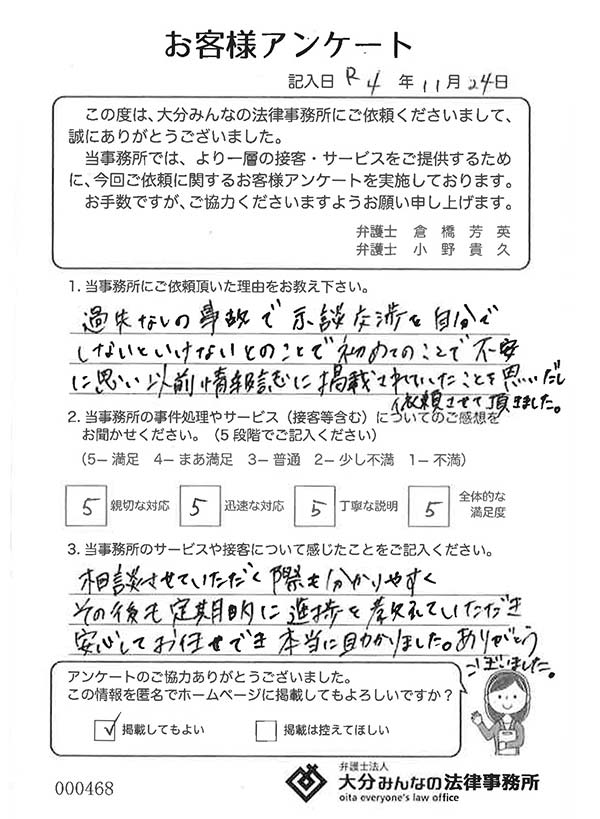 お客様アンケート
記入日 R4年11月24日
この度は、大分みんなの法律事務所にご依頼くださいまして、
誠にありがとうございました。
当事務所では、より一層の接客・サービスをご提供するため
に、今回ご依頼に関するお客様アンケートを実施しております。
お手数ですが、ご協力くださいますようお願い申し上げます。
弁護士 倉橋芳英
弁護士 小野貴久
1. 当事務所にご依頼頂いた理由をお教え下さい。
過失なしの事故で示談交渉を自分で
しないといけないとのことで初めてのことで不安
に思い以前情報誌に掲載されていたことを思いだし
依頼させて頂きました。
2. 当事務所の事件処理やサービス（接客等含む）についてのご感想を
お聞かせください。（5段階でご記入ください）
（5－満足 4－まあ満足 3－普通 2－少し不満 1－不満）
5 親切な対応 5 迅速な対応 5 丁寧な説明 5 全体的な
満足度
3. 当事務所のサービスや接客について感じたことをご記入ください。
相談させていただく際も分かりやすく
その後も定期的に進捗を教えていただき
安心してお任せでき本当に助かりました。ありがとう
ございました。
アンケートのご協力ありがとうございました。
この情報を匿名でホームページに掲載してもよろしいですか？
✓ 掲載してもよい 掲載は控えてほしい
000468
弁護士法人
大分みんなの法律事務所
oita everyone's law office